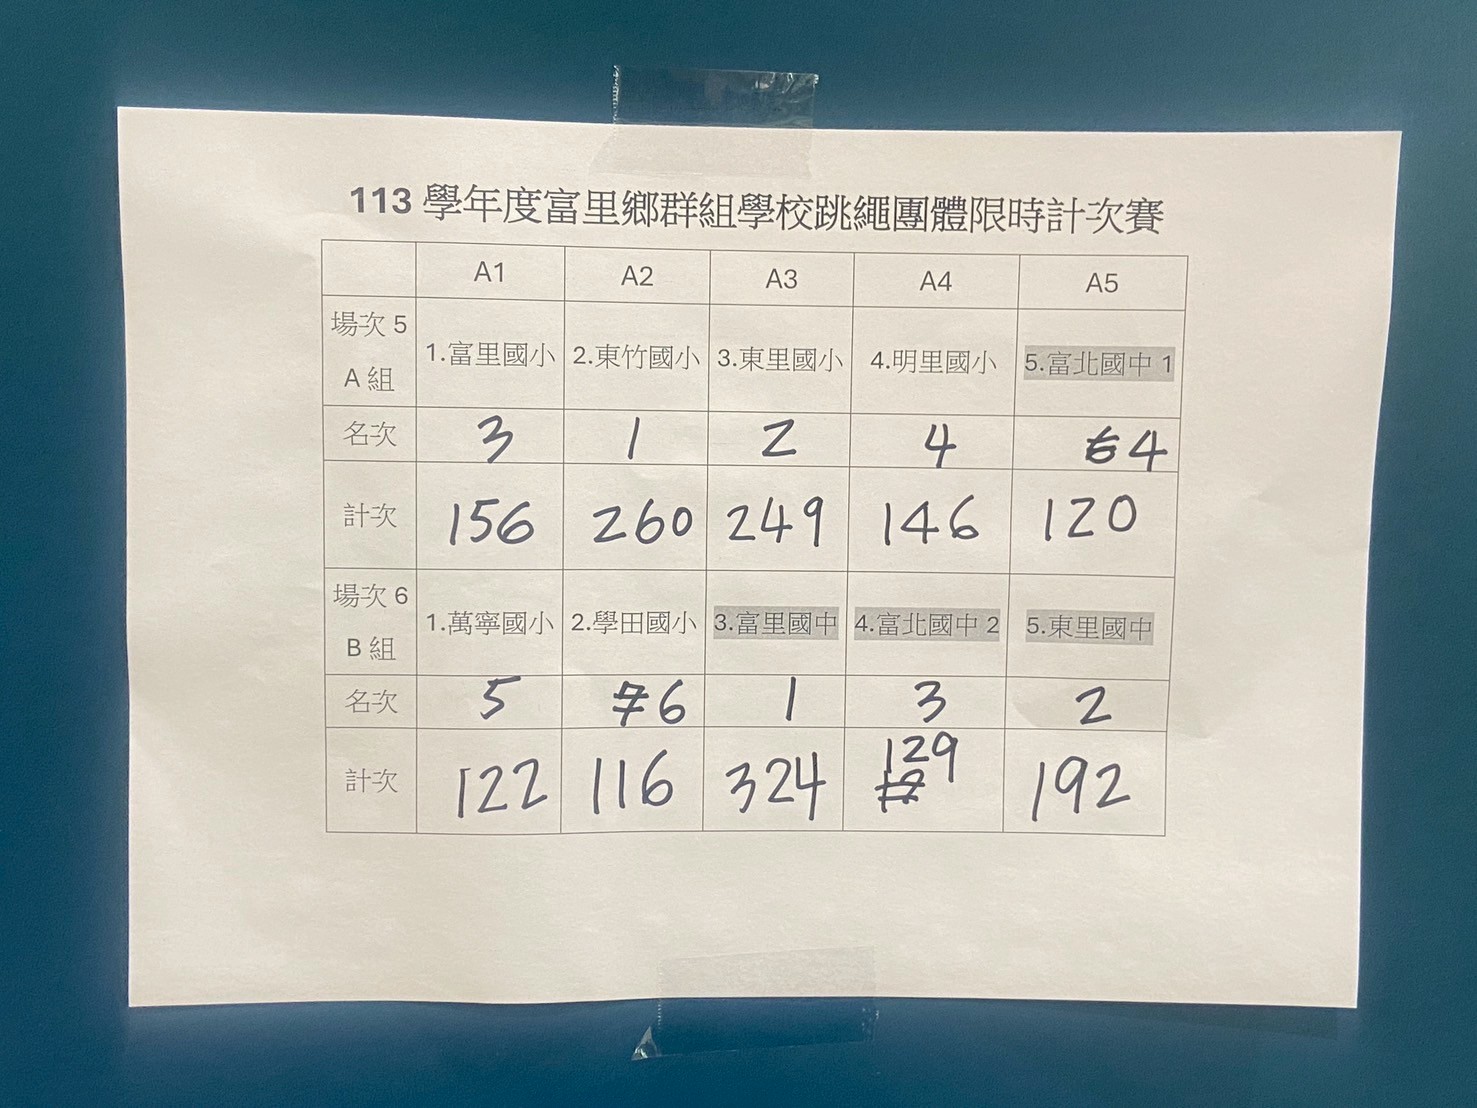 113 學年度富里鄉群組學校跳繩團體限時計次賽
A1 A2 A3 A4 A5
場次 5 A 組 1.富里國小 2.東竹國小 3.東里國小 4.明里國小 5.富北國中 1
名次 3 1 2 4 4
計次 156 260 249 146 120
場次 6 B 組 1.萬寧國小 2.學田國小 3.富里國中 4.富北國中 2 5.東里國中
名次 5 6 1 3 2
計次 122 116 324 129 192